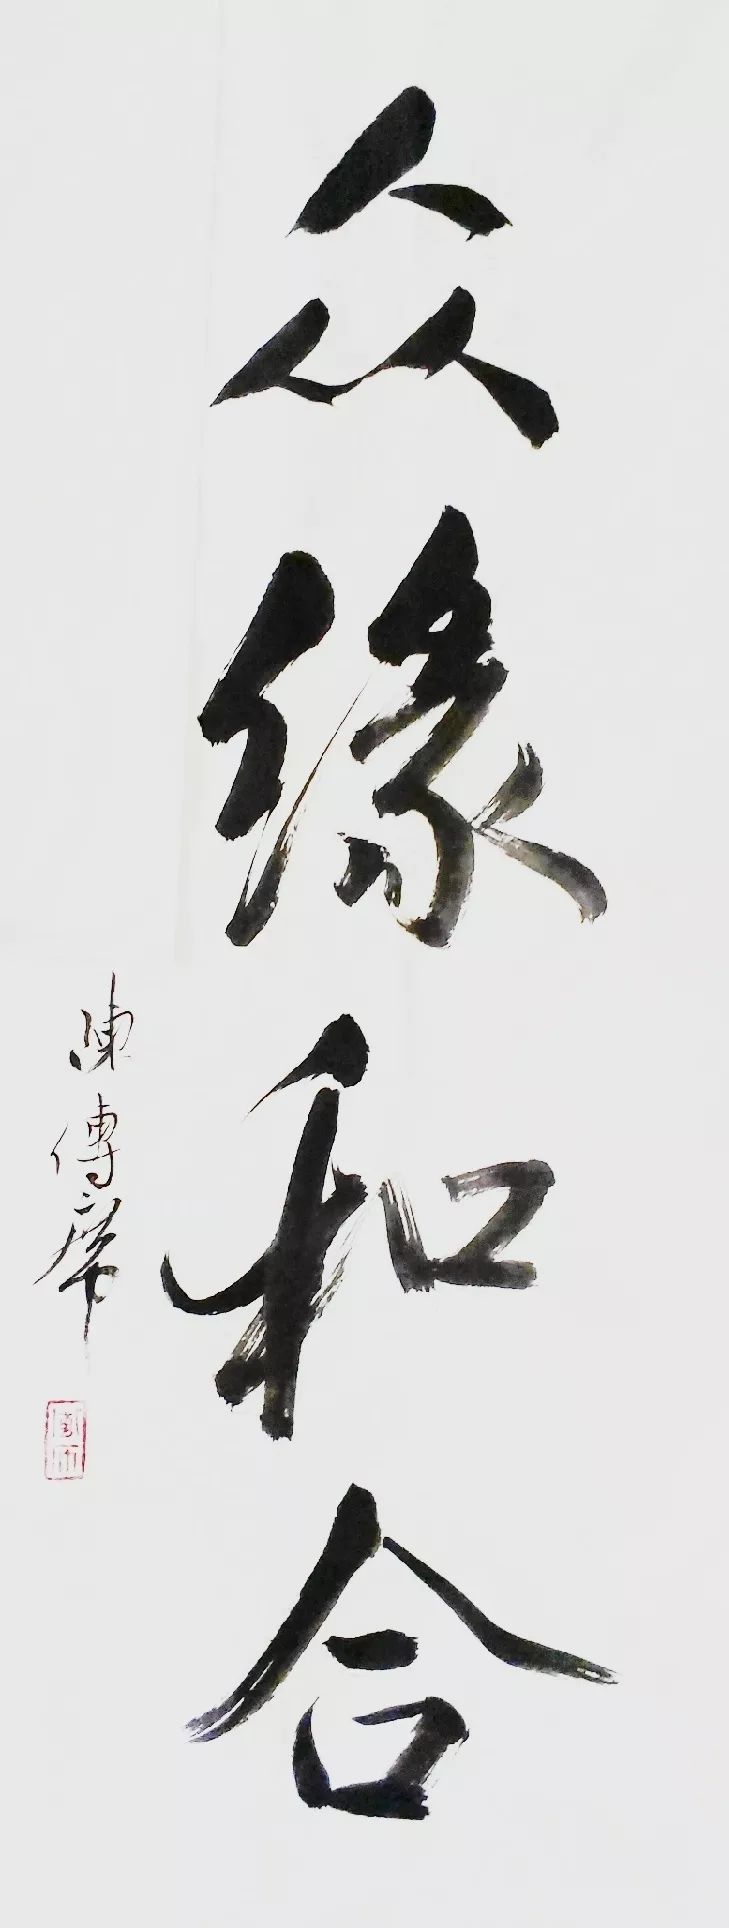 众缘和合
陳傳席